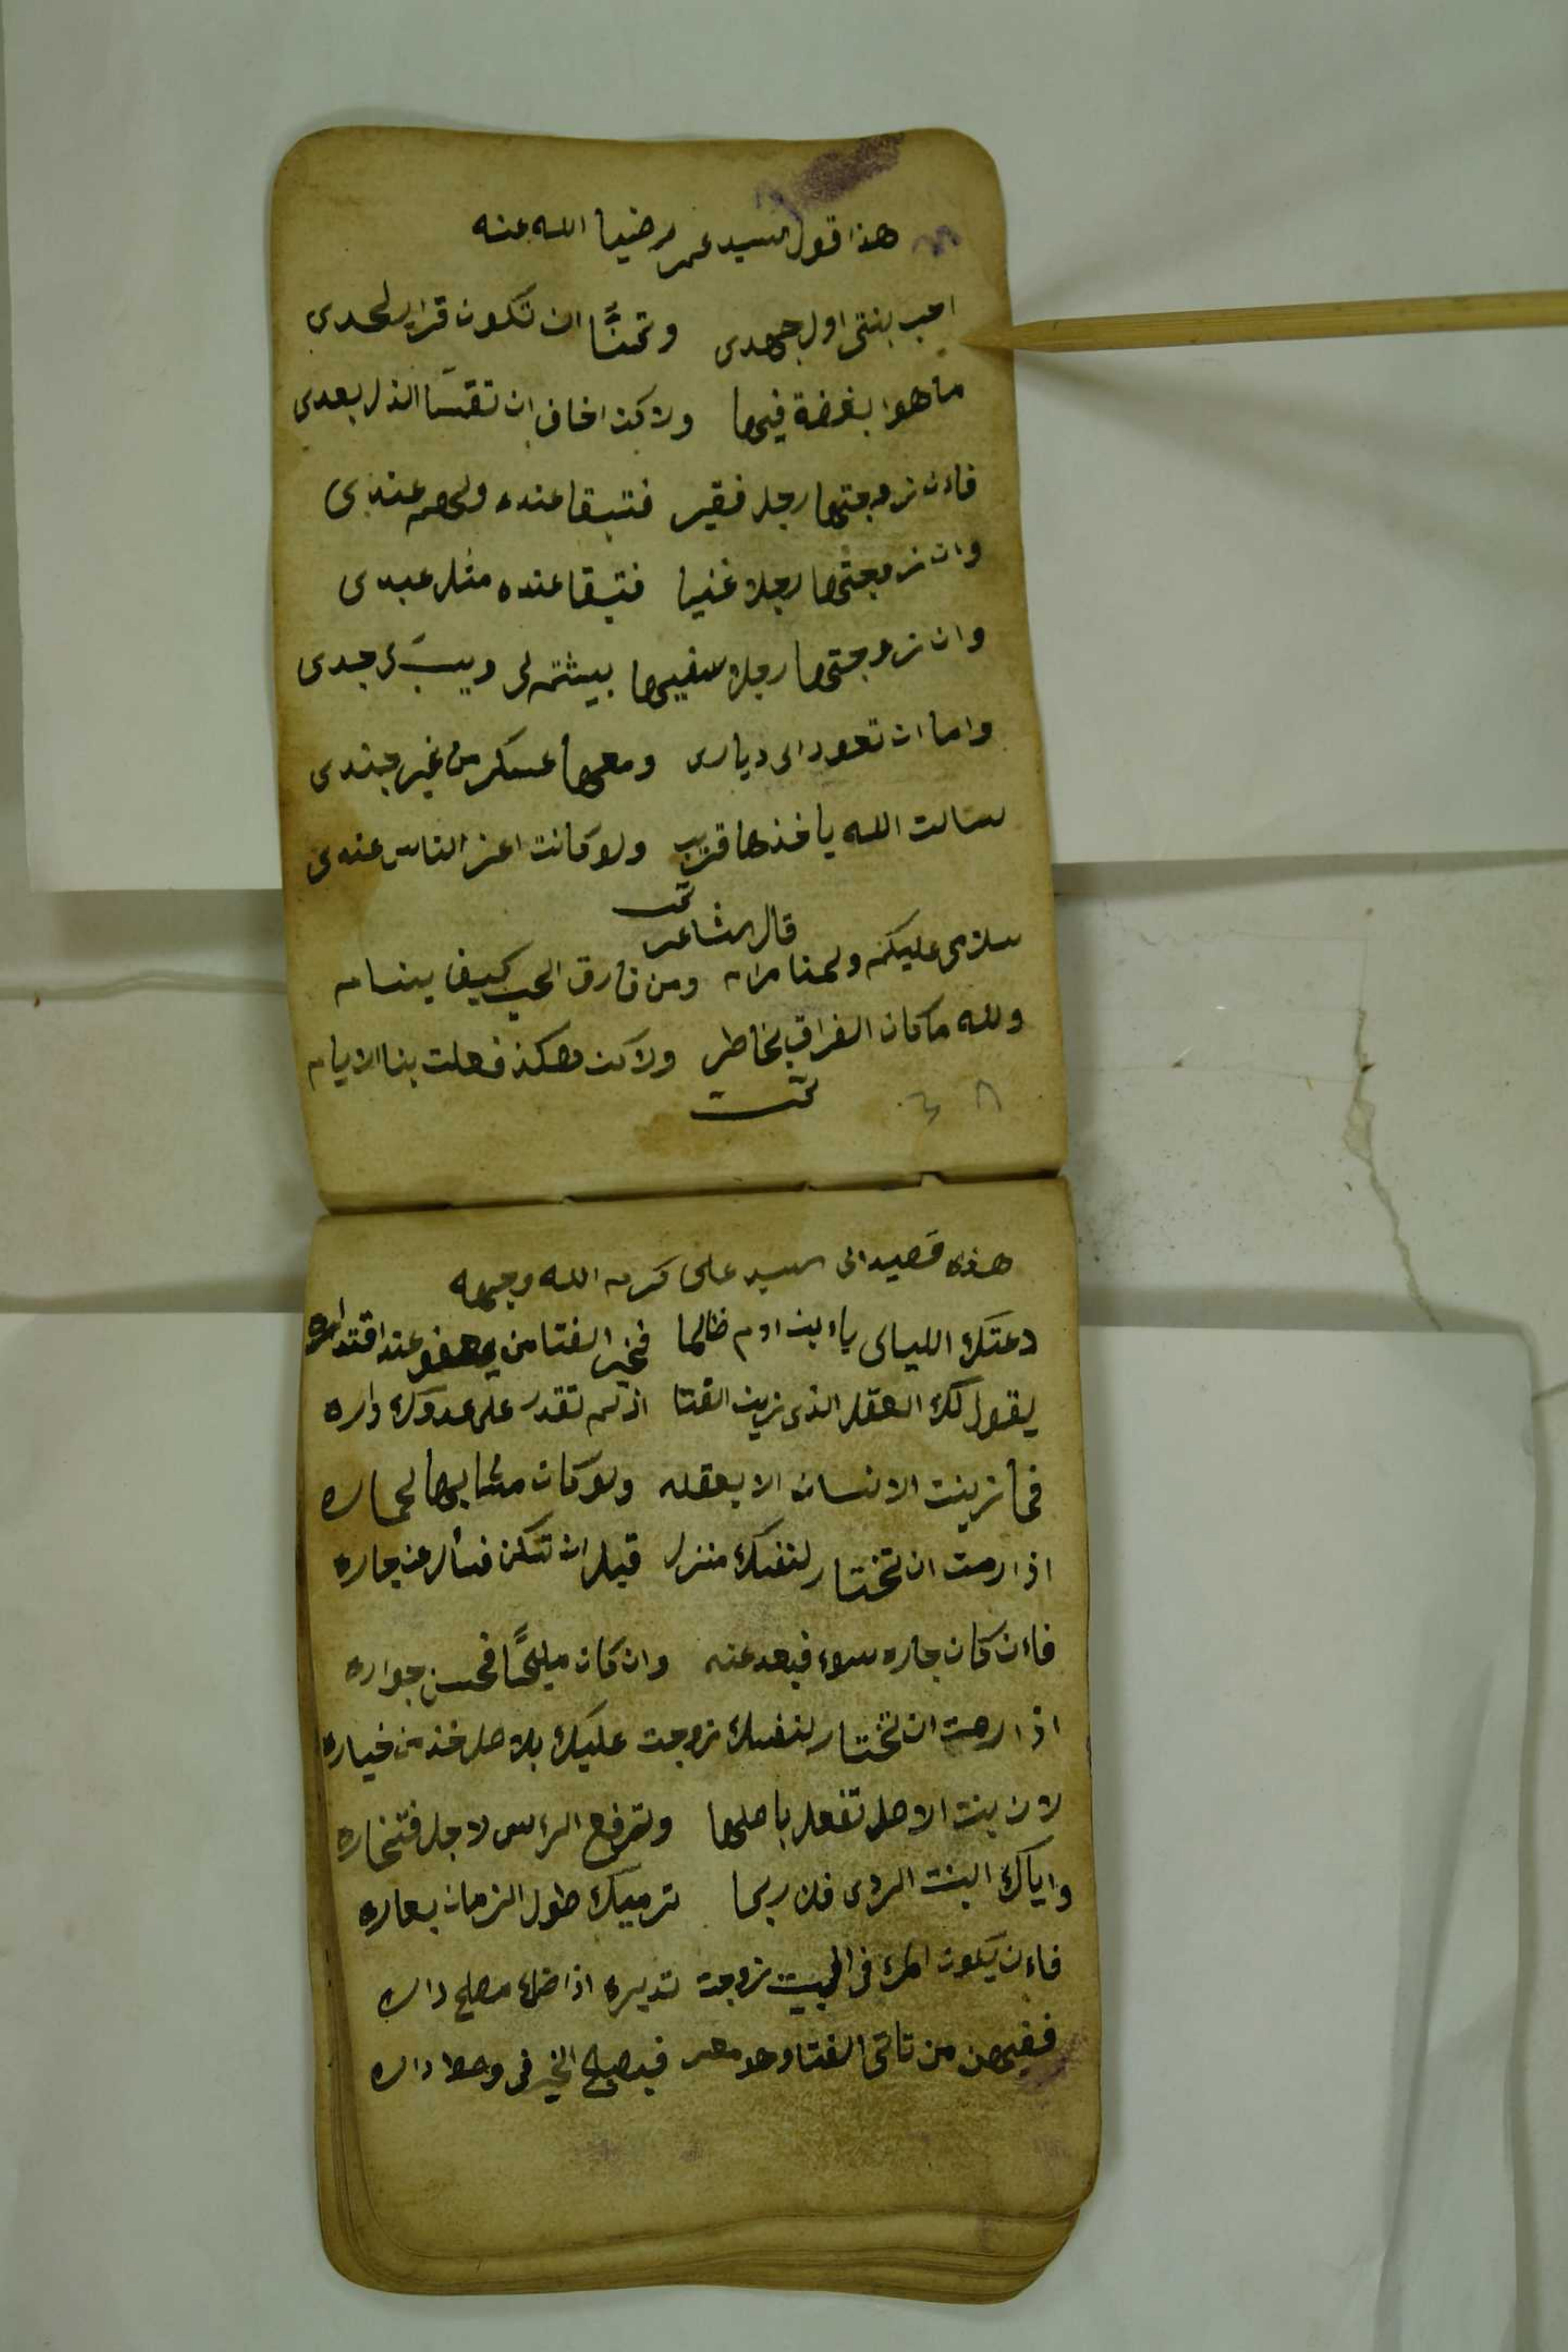 هذا قول السيد عمر رضيا الله عنه
احب بنتى اول جهدى وتمنّا ان تكون قرار لحدى
ما هوا بغضة فيها ولاكن اخاف ان تقسّا الذل بعدى
فاءن زوجتها رجل فقير فتبقا عنده ولهم عندى
وان زوجتها رجلا غنيا فتبقا عنده مثل عبدى
وان زوجتها رجلا سفيها بيشتم لى ويسبّ جدى
واما ان تعود الى ديارى ومعها عسكر من غير جندى
سالت الله ياخذها قريب ولو كانت اعز الناس عندى
تمت
قال الشاعر
سلامى عليكم ولمنا مرام ومن فارق الحب كيف ينام
ولله ما كان الفراق بخاطر ولاكن هكذ فعلت بنا الايام
تمت
هذه قصيدا الى السيد على كرم الله وجهه
دعتك الليالى يا ابن ادم ظالما فخير الفتا من يعفو عند اقتداره
يقول لك العقل الذى زين الفتا اذ لم تقدر على عدوك داره
فما زينت الانسان الا بعقله ولو كان مشابها لحماره
اذا رمت ان تختار لنفسك منزل قبل ان تسكن فسأل عن جاره
فاءن كان جاره سوء فبعد عنه وان كان مليحًا فحسن جواره
اذا رمت ان تختار لنفسك زوجت عليك بلاصل فخذ من خياره
لان بنت الاصل تفعل باصلها وترفع الراس لاجل فتخاره
واياك البنت الردى فلن ربما ترميك طول الزمان بعاره
فاءن يكون لك فى البيت زوجت تديره اذا ضاء مصلح داره
ففيهن من تاتى الفتا وهو معسر فيصبح الخير فى وسط داره